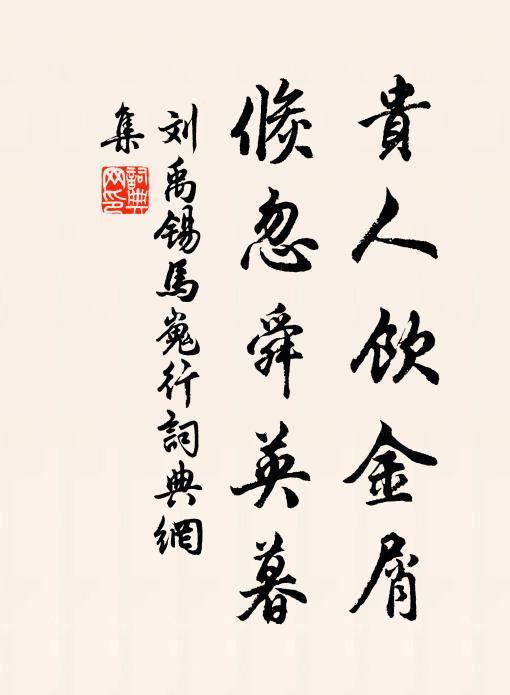 貴人飲金屑
倏忽舜英暮
刘禹锡馬嵬行詞典網
集
詞典网印